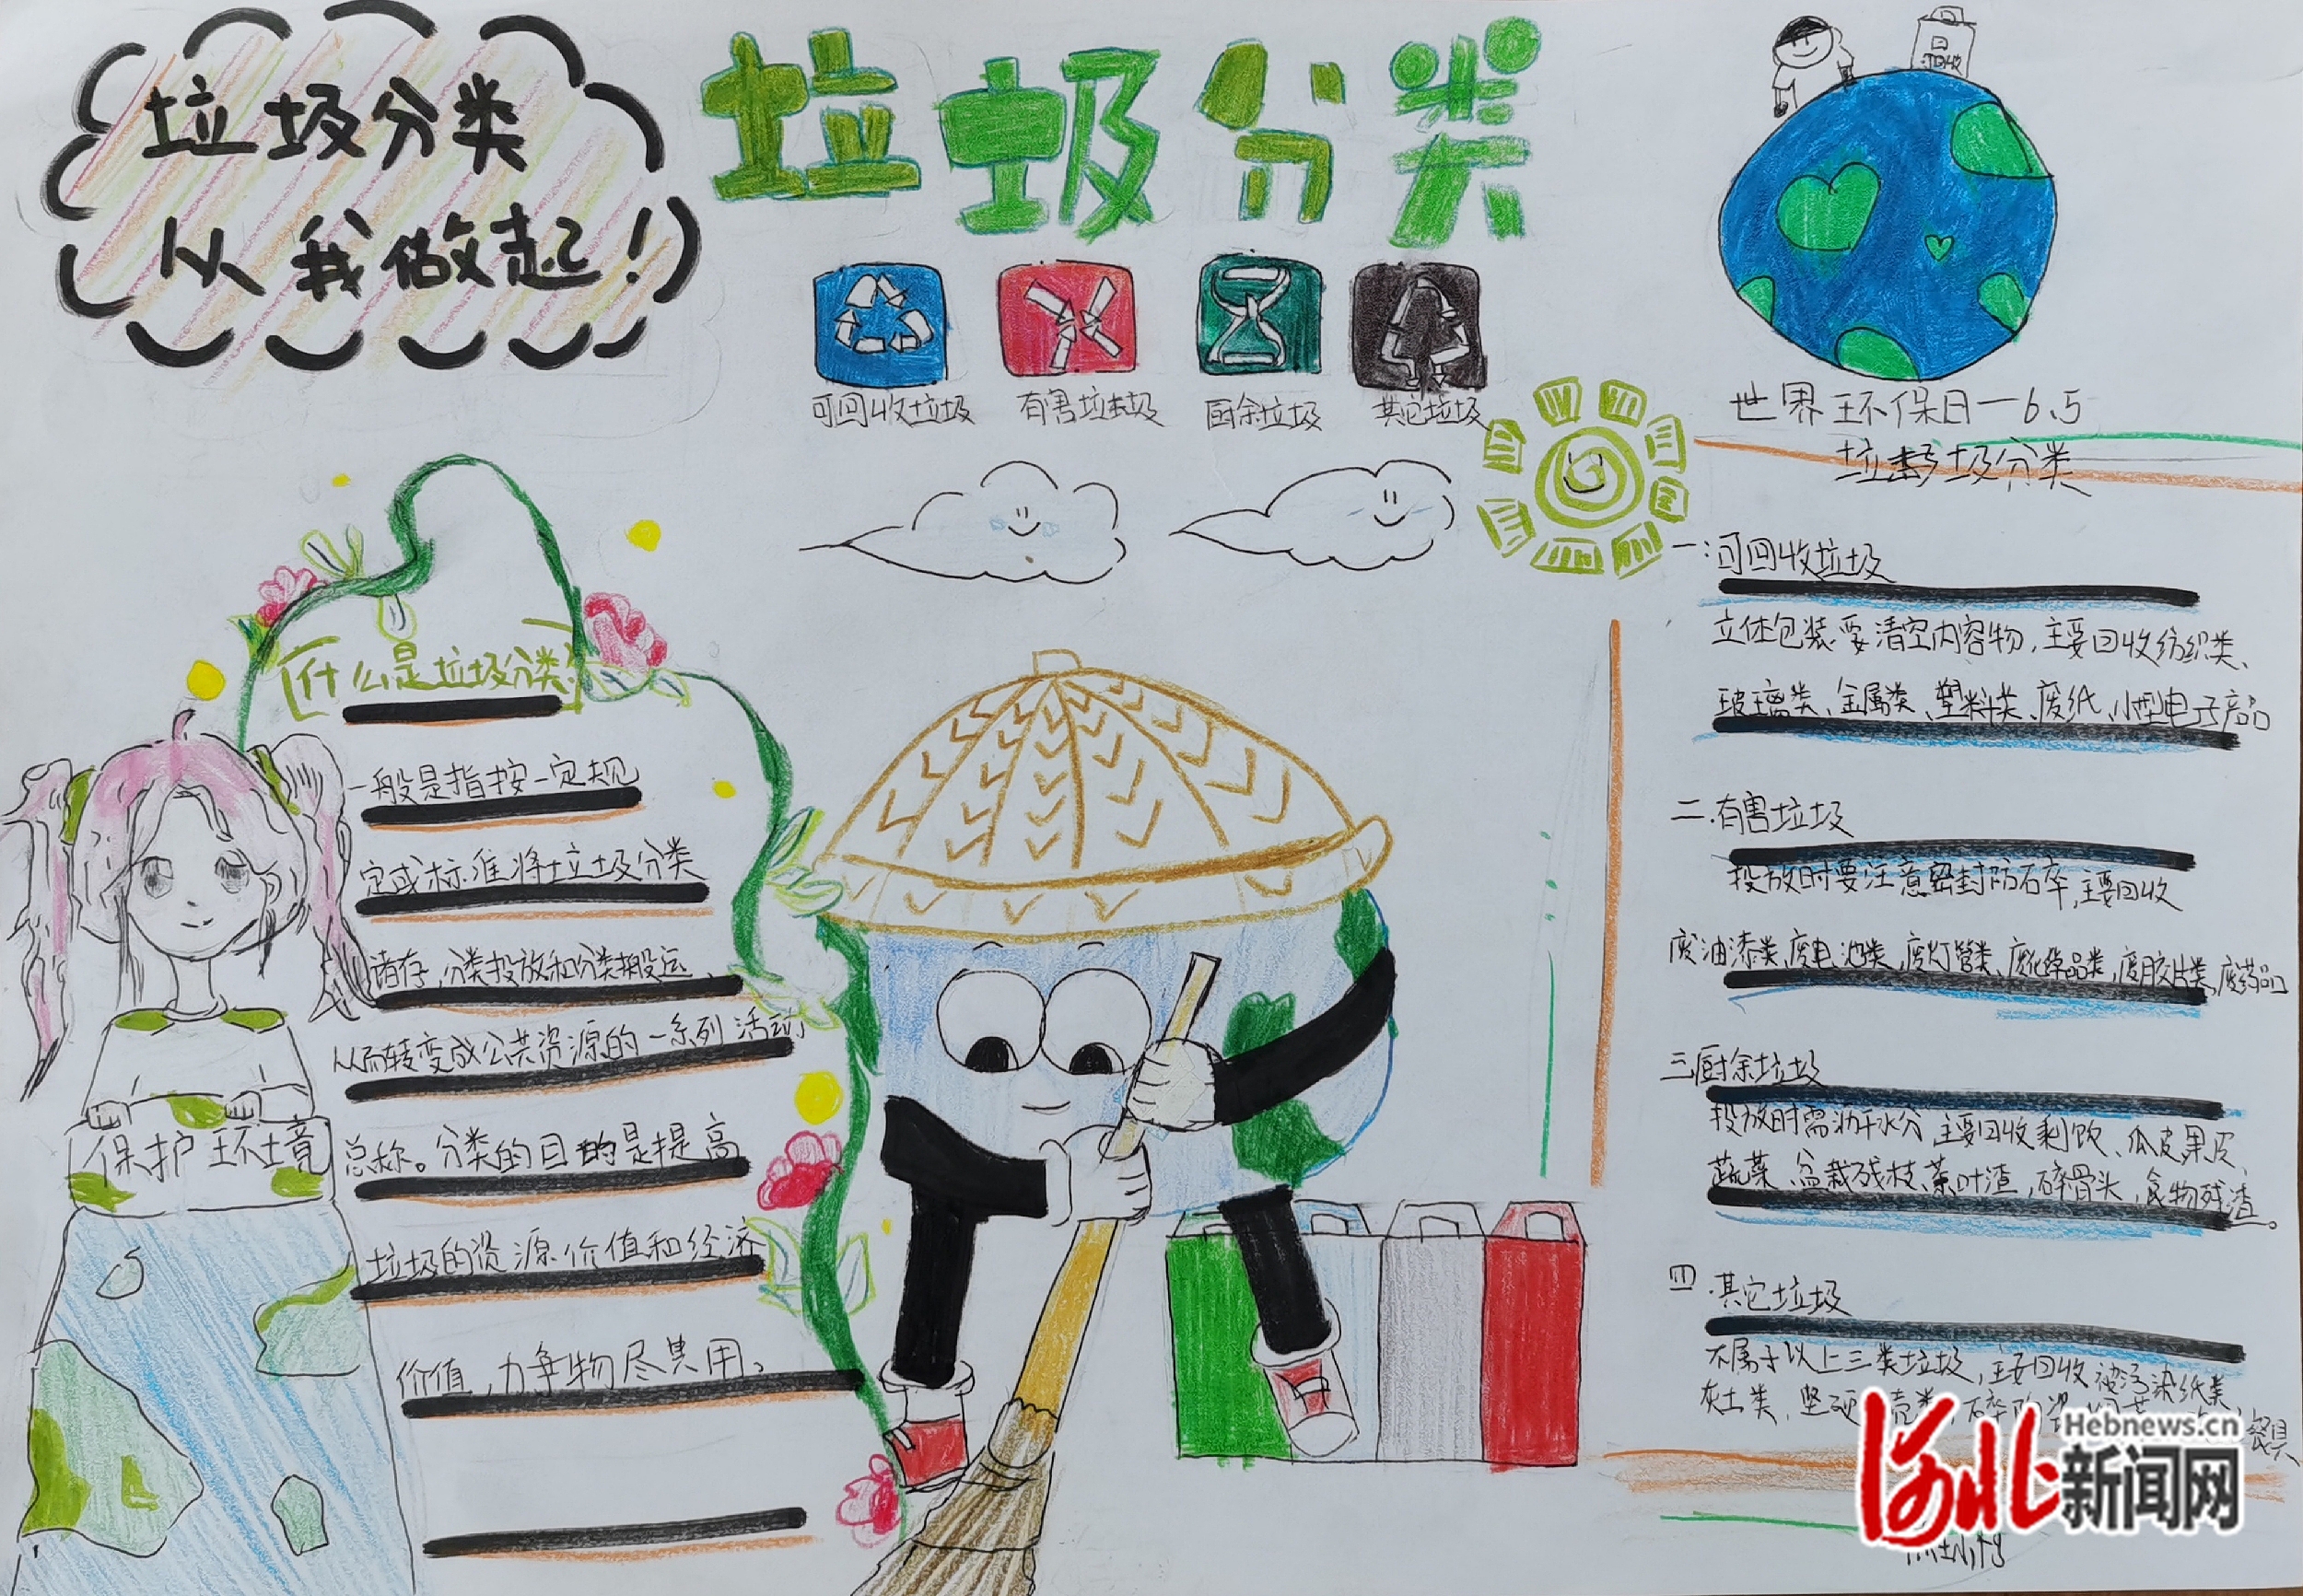 垃圾分类
从我做起!
垃圾分类
可回收垃圾
有害垃圾
厨余垃圾
其它垃圾
世界环保日—6.5
垃圾分类
什么是垃圾分类
一般是指按一定规
定或标准将垃圾分类
储存,分类投放和分类搬运、
从而转变成公共资源的一系列活动
总称。分类的目的是提高
垃圾的资源价值和经济
价值,力争物尽其用、
保护环境
一:可回收垃圾
立体包装要清空内容物,主要回收纺织类、
玻璃类、金属类、塑料类、废纸、小型电子产品
二.有害垃圾
投放时要注意密封防碎,主要回收
废油漆类、废电池类,废灯管类、废化学品类,废胶片类,废药品
三厨余垃圾
投放时需沥干水分 主要回收剩饮、瓜皮果皮、
蔬菜、盆栽残枝、茶叶渣,碎骨头,食物残渣。
四.其它垃圾
不属于以上三类垃圾,主要回收被污染纸类、
灰土类,坚硬 壳类 碎陶瓷 餐具
Hebnews.cn
河北新闻网